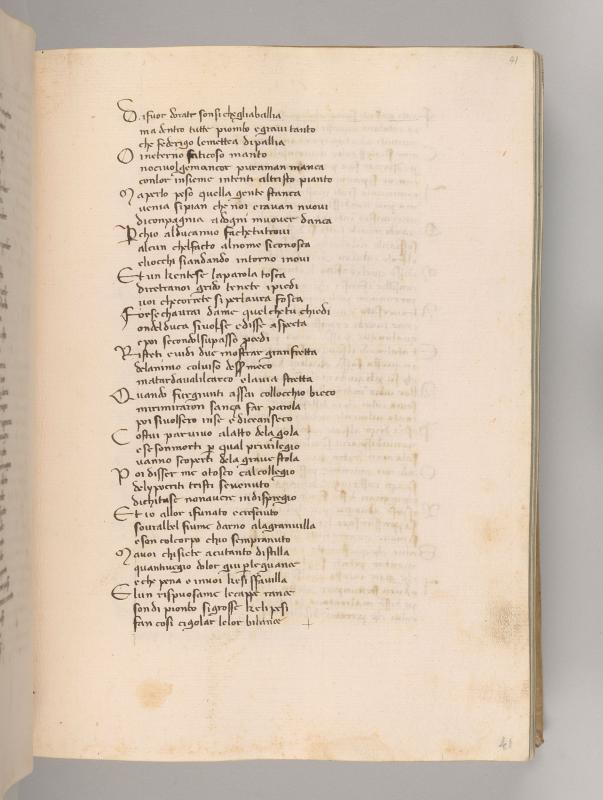 41
Di fuor dorate sonsi chegliaballia
ma dentro tutte piombo egravi tanto
che federigo lemettea dipallia
O ineterno faticoso manto
noci volgemancor pur aman manca
conlor insieme intenti altristo pianto
Maperlo peso quella gente stanca
venia sipian che noi eravan nuovi
dicompagnia adogni muover danca
Perchio alducamio fachetutrovi
alcun chelfacto alnome siconosca
eliocchi siandando intorno movi
Et un kentese laparola tosca
diretranoi grido tenete ipiedi
voi checorrete si perlaura fosca
Forse chaurai dame quel chetu chiedi
ondelduca sivolse edisse aspecta
epoi secondolsupasso procedi
Risteti evidi due mostrar granfretta
delanimo colviso desser meco
matardavalilcarco elavia stretta
Quando fuxgiunti assai collocchio bieco
mirimiraron sança far parola
poi sivolsero inse ediceanseco
Costui par vivo alatto dela gola
esesonmorti per qual privilegio
vanno scoperti dela grave stola
Poi disser me otosco calcollegio
delypocriti tristi sevenuto
dichituse nonavere indispregio
Et io allor ifunato ecresciuto
sovralbel fiume darno alagranvilla
eson colcorpo chio sempranuto
Mavoi chisiete acutanto distilla
quantiuegio dolor giu perleguance
eche pena e invoi kesi sfavilla
Elun rispuosame lecappe rance
sondi piombo sigrosse keli pesi
fan cosi cigolar lelor bilance
41